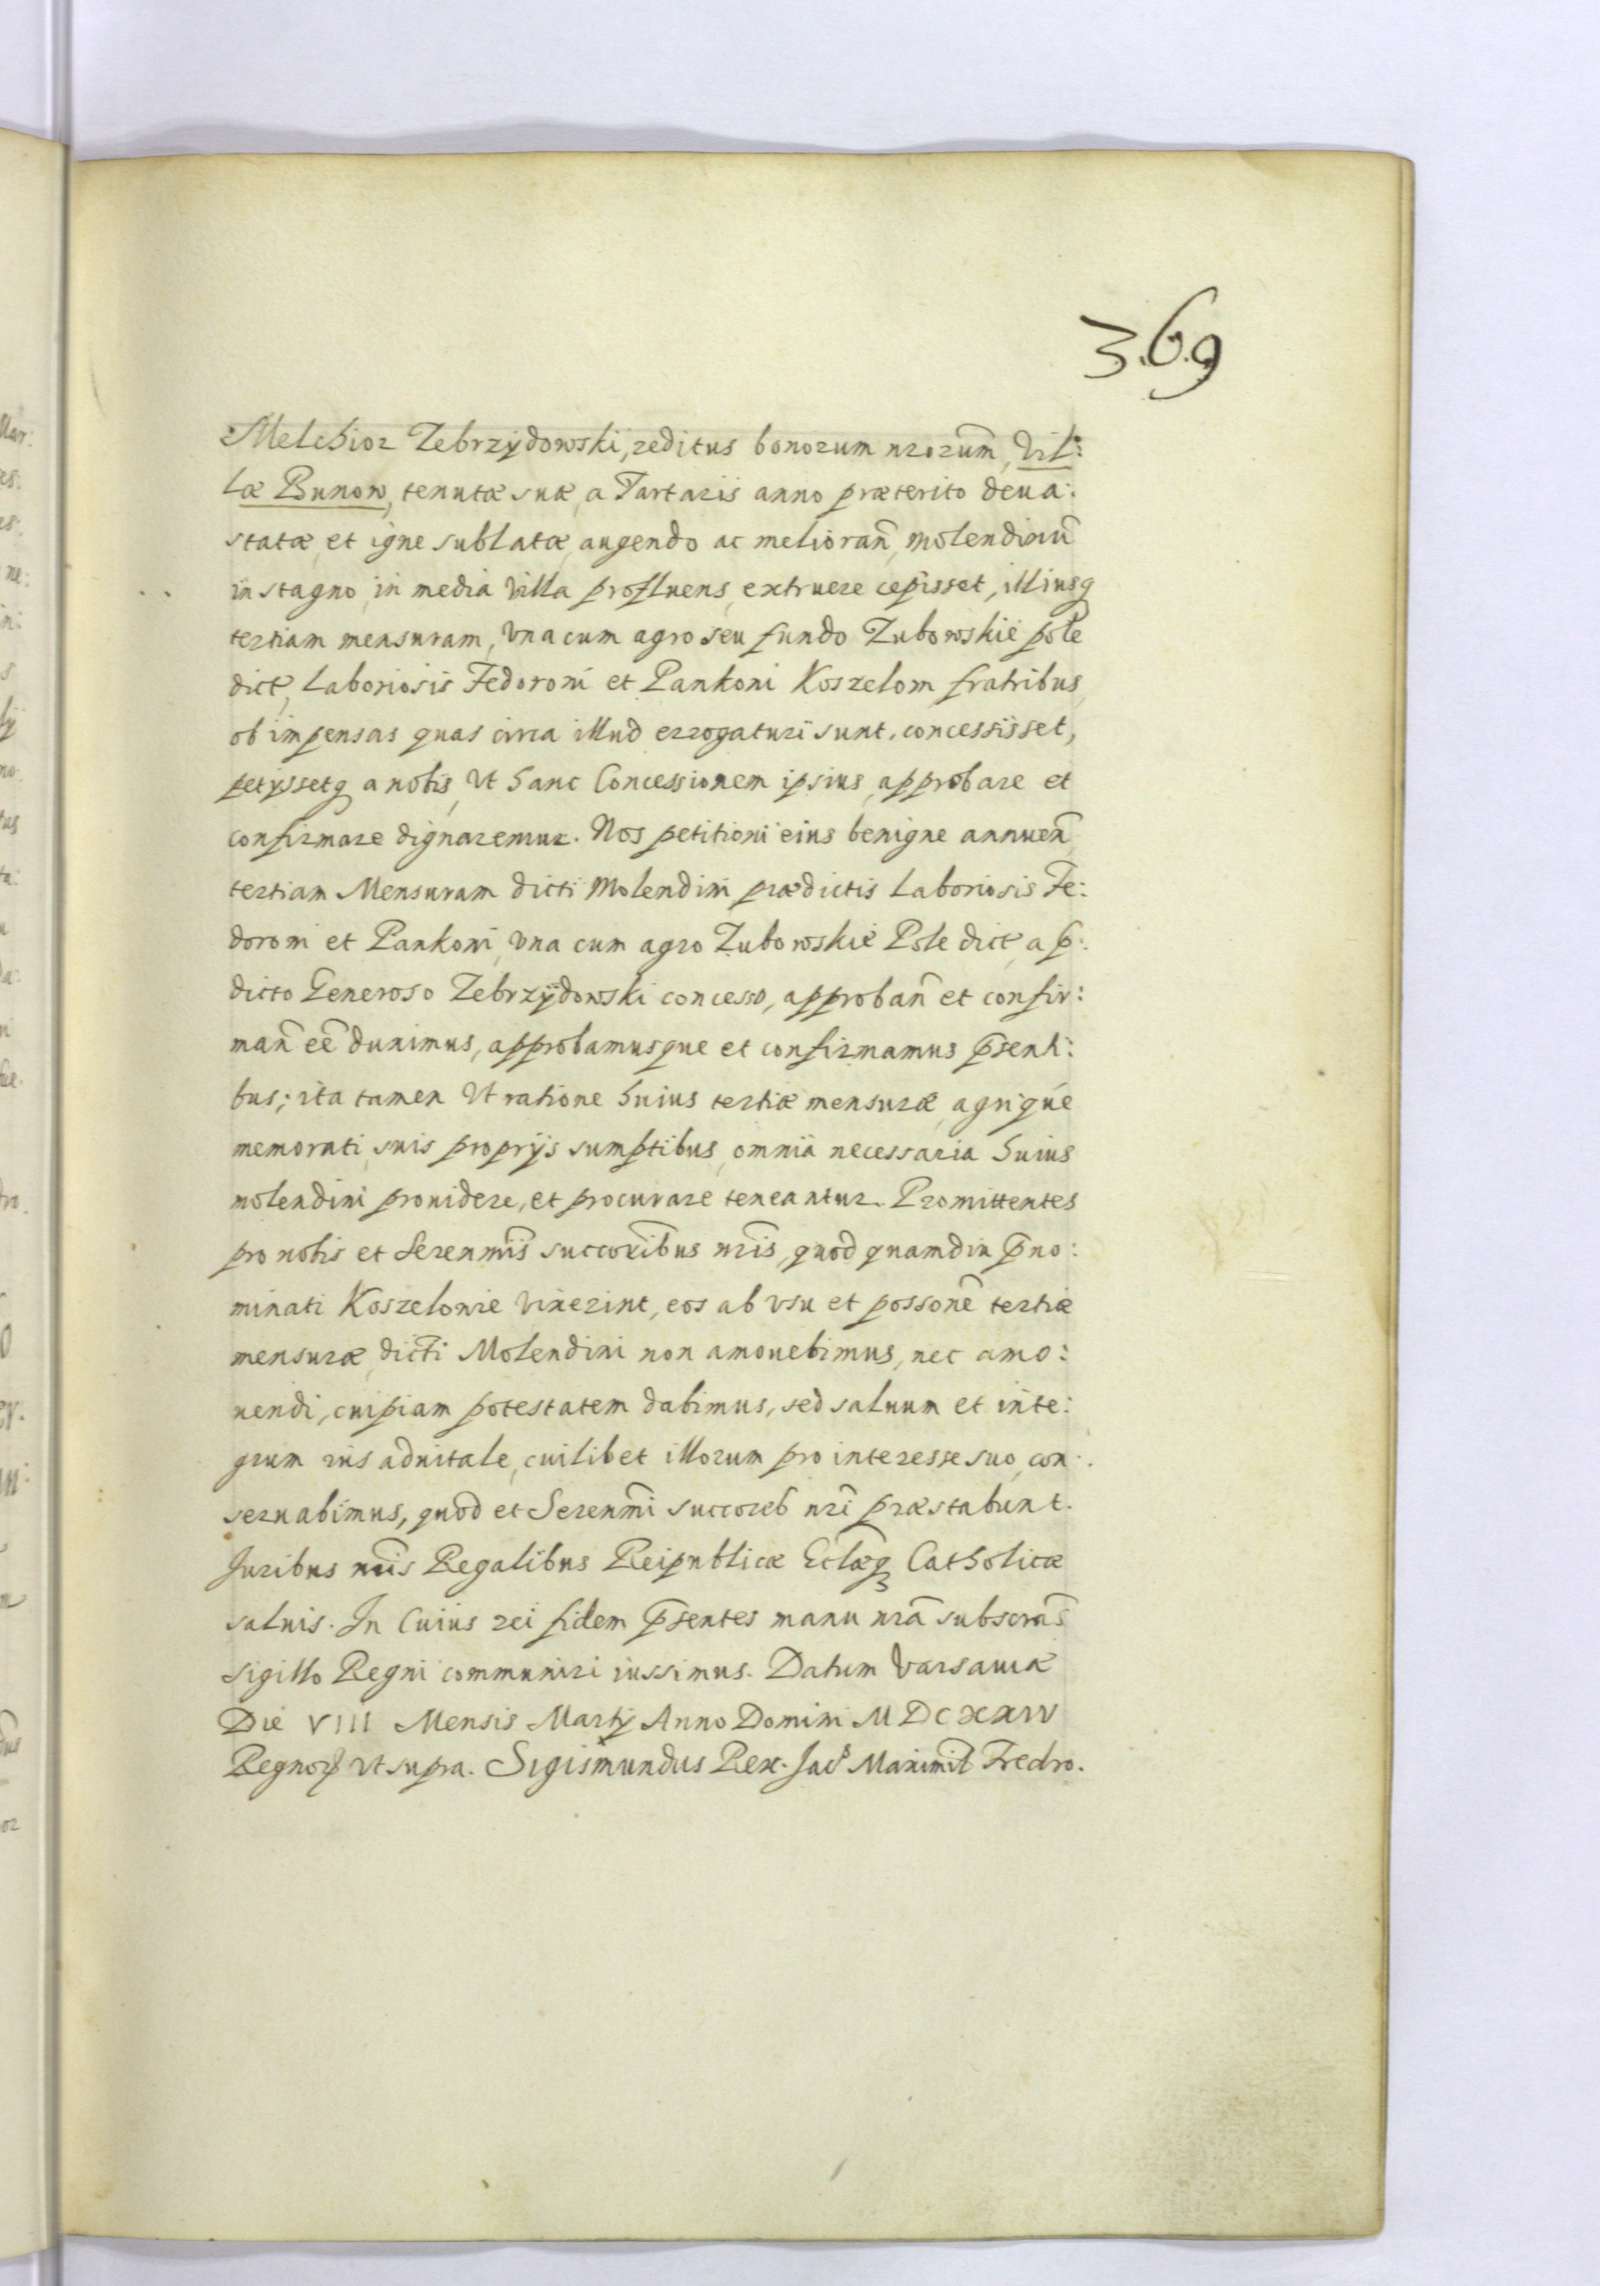 3.6.9
Melchior Zebrzydowski, reditus bonorum nrorum̃, Vil:
læ Bunow, tenutæ suæ, a Tartaris anno præterito deua:
statæ, et igne sublatæ, augendo ac melioran̄, molendinū
in stagno, in media Villa profluens, extruere cepisset, illiusq
tertiam mensuram, Vna cum agro seu fundo Zubowskie pole
dict, Laboriosis Fedoroni et Pankoni Koszelom fratribus,
ob impensas quas circa illud errogaturi sunt, concessisset,
petijssetq a nobis, Vt hanc Concessionem ipsius, approbare et
confirmare dignaremur. Nos petitioni eius benigne annuen̄,
tertiam Mensuram dicti Molendini prædictis Laboriosis Fe:
doroni et Pankoni, Vna cum agro Zubowskie Pole dict, a p̄:
dicto Generoso Zebrzydowski concesso, approban̄ et confir:
man̄ eē duximus, approbamusque et confirmamus p̄senti:
bus; ita tamen Vt ratione huius tertiæ mensuræ, agrique
memorati, suis proprijs sumptibus, omnia necessaria huius
molendini prouidere, et procurare teneantur. Promittentes
pro nobis et Serenmīs succorībus nrīs, quod quamdiu p̄no:
minati Koszelowie Vixerint, eos ab vsu et possonē tertiæ
mensuræ, dicti Molendini non amouebimus, nec amo:
uendi, cuipiam potestatem dabimus, sed saluum et inte:
grum ius aduitale, cuilibet illorum pro interesse suo, con:
seruabimus, quod et Serenmī succoreb nrī præstabunt.
Juribus nrīs Regalibus Reipublicæ Eclæq̄ Catholicæ
saluis. In Cuius rei fidem p̄sentes manu nrā subscras̄
sigillo Regni communiri iussimus. Datum Varsauiæ
Die VIII Mensis Martij Anno Domini MDCXXIV
Regnoꝝ Vt supra. Sigismundus Rex. Jac. Maximil Fredro.